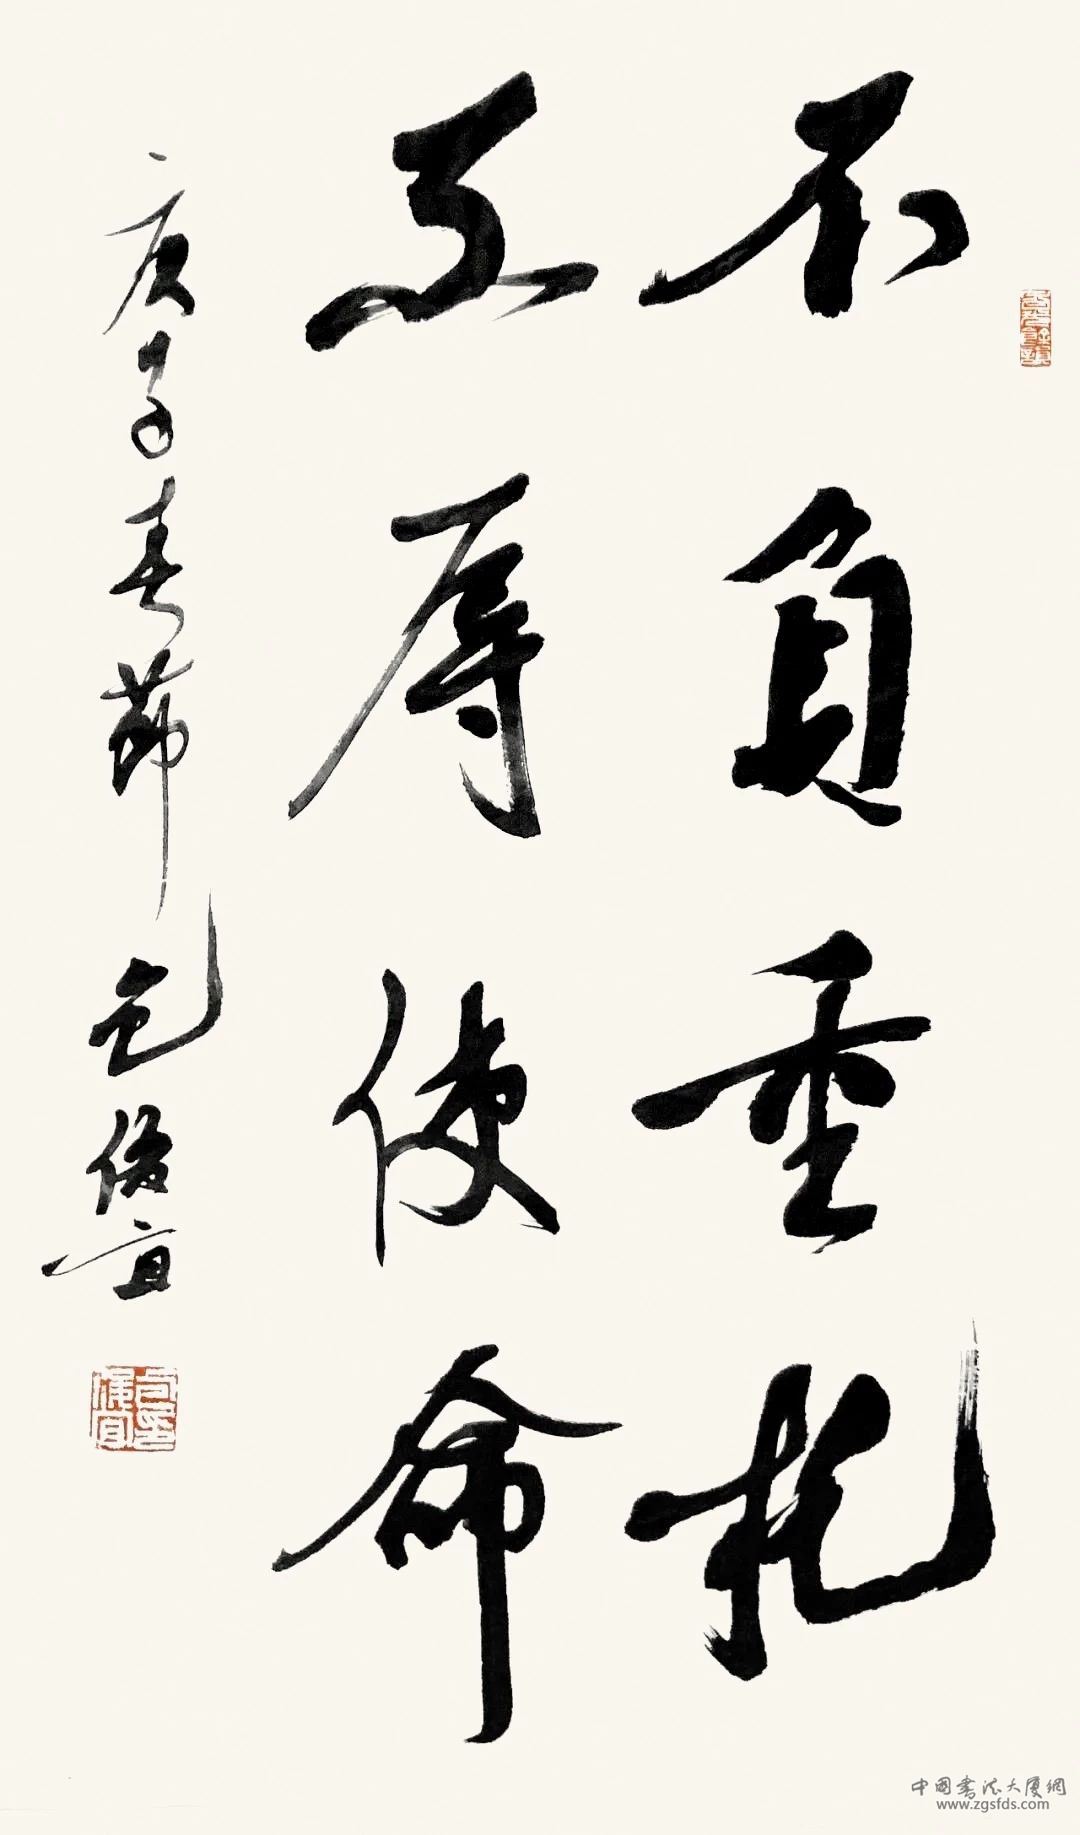 不負重托
不辱使命
庚子春節 包俊宜
包俊宜印
中國書法大廈網
www.zgsfds.com